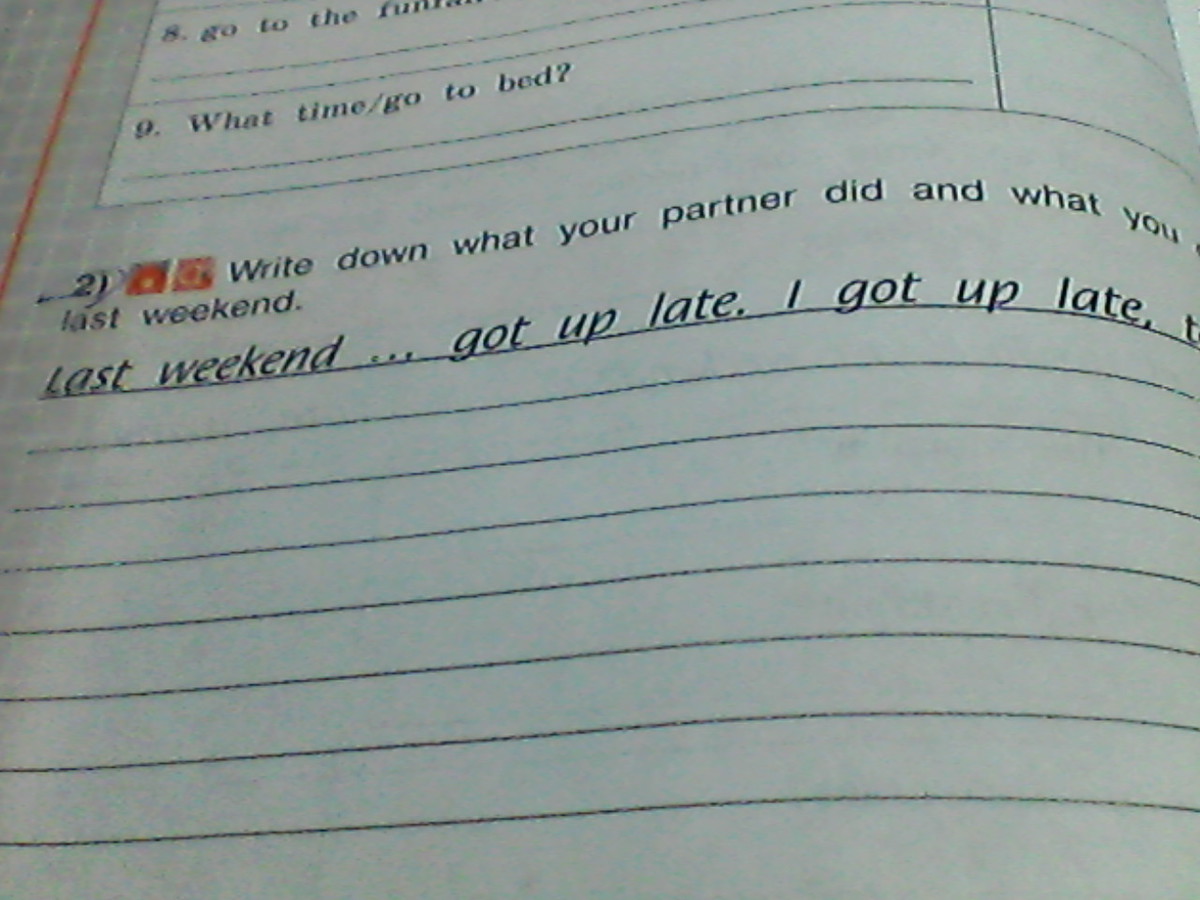 8. go to the
9. What time/go to bed?
2) Write down what your partner did and what you
last weekend.
Last weekend ... got up late. I got up late,